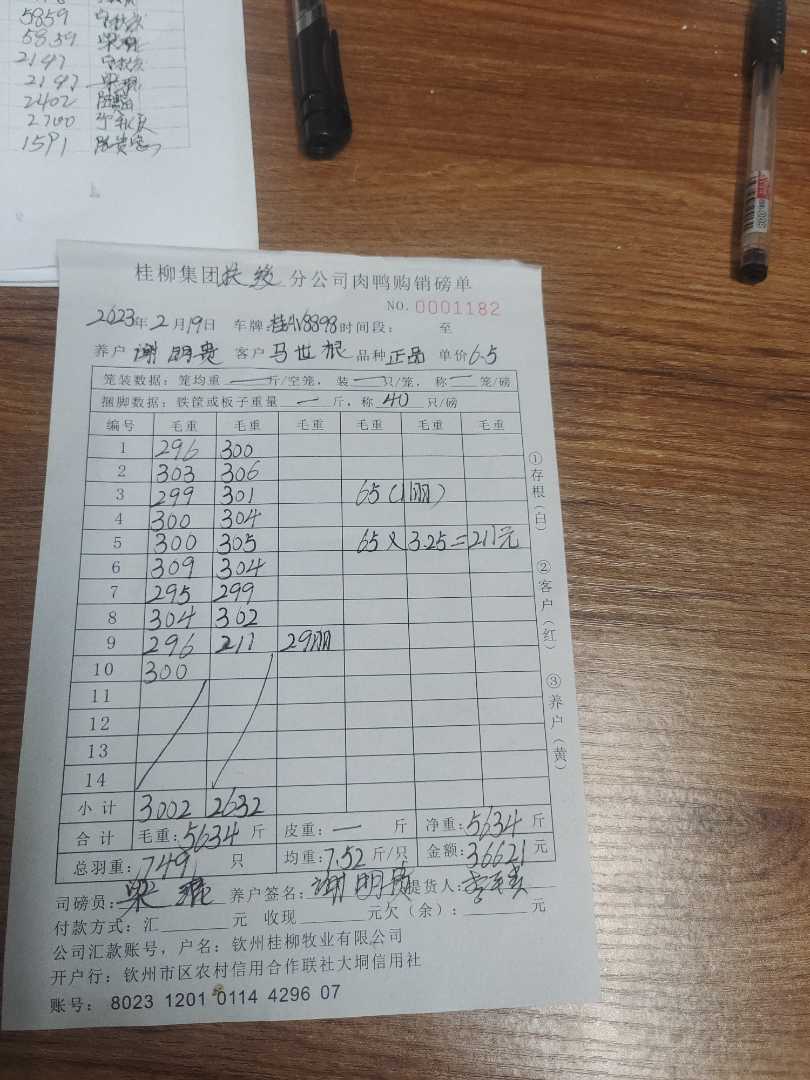 5859
5859
2197
2197
2402
2700
1591
桂柳集团扶绥分公司肉鸭购销磅单
NO. 0001182
2023年2月19日 车牌:桂AV8898时间段: 至
养户 谢明贵 客户 马世根 品种 正品 单价6.5
笼装数据: 笼均重 一 斤/空笼, 装 一 只/笼, 称 一 笼/磅
捆脚数据: 铁筐或板子重量 一 斤, 称 40 只/磅
编号 毛重 毛重 毛重 毛重 毛重 毛重
1 296 300
2 303 306
3 299 301 65(1脚)
4 300 304
5 300 305 65 x 3.25=211元
6 309 304
7 295 299
8 304 302
9 296 211 29脚
10 300
11
12
13
14
小计 3002 2632
合计 毛重:5634 斤 皮重: 一 斤 净重:5634 斤
总羽重: 749 只 均重:7.52 斤/只 金额:36621 元
司磅员: 梁 养户签名: 谢明贵 提货人:
付款方式: 汇 元 收现 元欠(余): 元
公司汇款账号, 户名: 钦州桂柳牧业有限公司
开户行: 钦州市区农村信用合作联社大垌信用社
账号: 8023 1201 0114 4296 07
①存根(白)
②客户(红)
③养户(黄)